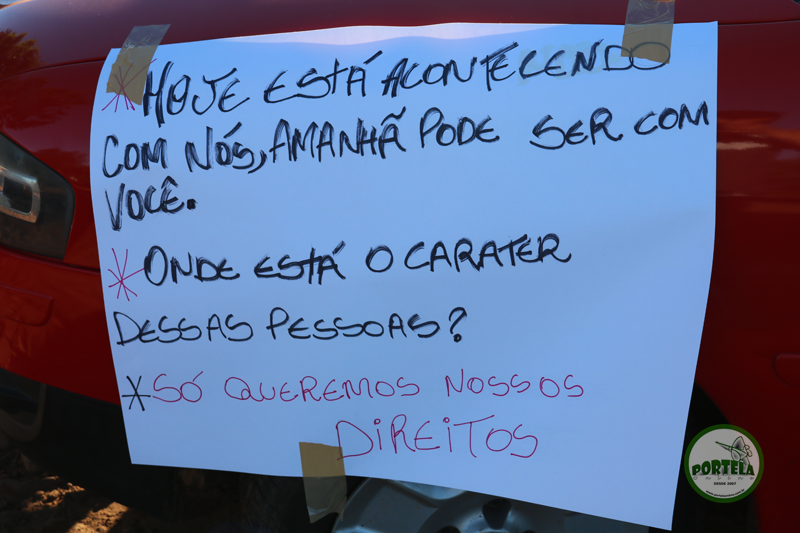 * HOJE ESTÁ ACONTECENDO
COM NÓS, AMANHÃ PODE SER COM
VOCÊ.
* ONDE ESTÁ O CARATER
DESSAS PESSOAS?
* SÓ QUEREMOS NOSSOS
DIREITOS
PORTELA
ONLINE
DESDE 2007